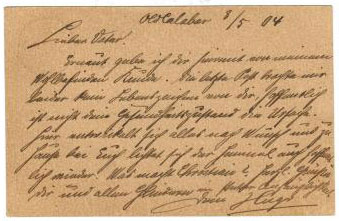 Old Calabar 3/5 04
Lieber Vater.
Erneut gebe ich dir hiermit von meinem
Wohlbefinden Kunde. Die letzte Post brachte mir
leider kein Lebenszeichen von dir, hoffentlich
ist nicht dein Gesundheitszustand die Ursache.
Hier entwickelt sich alles nach Wunsch und zu
Hause bei Euch sich der Himmel auch
wieder. Was macht Christian? Herzl. Grüße
dir und allen
dein Hugo